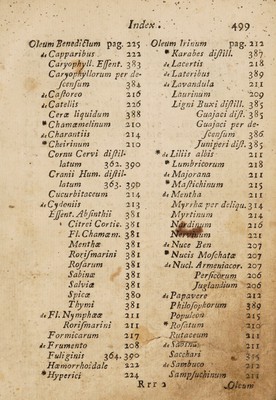 Index. 499
Oleum Benedictum pag. 225
de Capparibus 222
Caryophyll. Essent. 383
Caryophyllorum per de-
scensum 384
de Castoreo 216
de Catellis 226
Ceræ liquidum 388
* Chamæmelinum 210
de Charantiis 214
* Cheirinum 210
Cornu Cervi distil-
latum 362. 390
Cranii Hum. distil-
latum 363. 390
Cucurbitaceum 214
de Cydoniis 213
Essent. Absinthii 381
Citrei Cortic. 381
Fl. Chamæm. 381
Menthæ 381
Rorismarini 381
Rosarum 381
Sabinæ 381
Salviæ 381
Spicæ 380
Thymi 381
de Fl. Nymphææ 211
Rorismarini 211
Formicarum 217
de Frumento 208
Fuliginis 364. 390
Hæmorrhoidale 222
* Hyperici 224
Oleum Irinum pag. 212
* Karabes distill. 387
de Lacertis 218
Lateribus 389
de Lavandula 211
Laurinum 209
Ligni Buxi distill. 385
Guajaci dist. 385
Guajaci per de-
scensum 386
Juniperi dist. 385
* de Liliis albis 211
* Lumbricorum 218
de Majorana 211
* Mastichinum 215
de Mentha 211
Myrrhæ per deliqu. 314
Myrtinum 214
Nardinum 216
Nervinum 221
de Nuce Ben 207
* Nucis Moschatæ 207
de Nucl. Armeniacor. 207
Persicorum 206
Juglandium 206
de Papavere 212
Philosophorum 389
Populeon 215
* Rosatum 210
Rutaceum 211
de Sabina 211
Sacchari
de Sambuco 212
Sampsuchinum 214
Rrr 2 Oleum